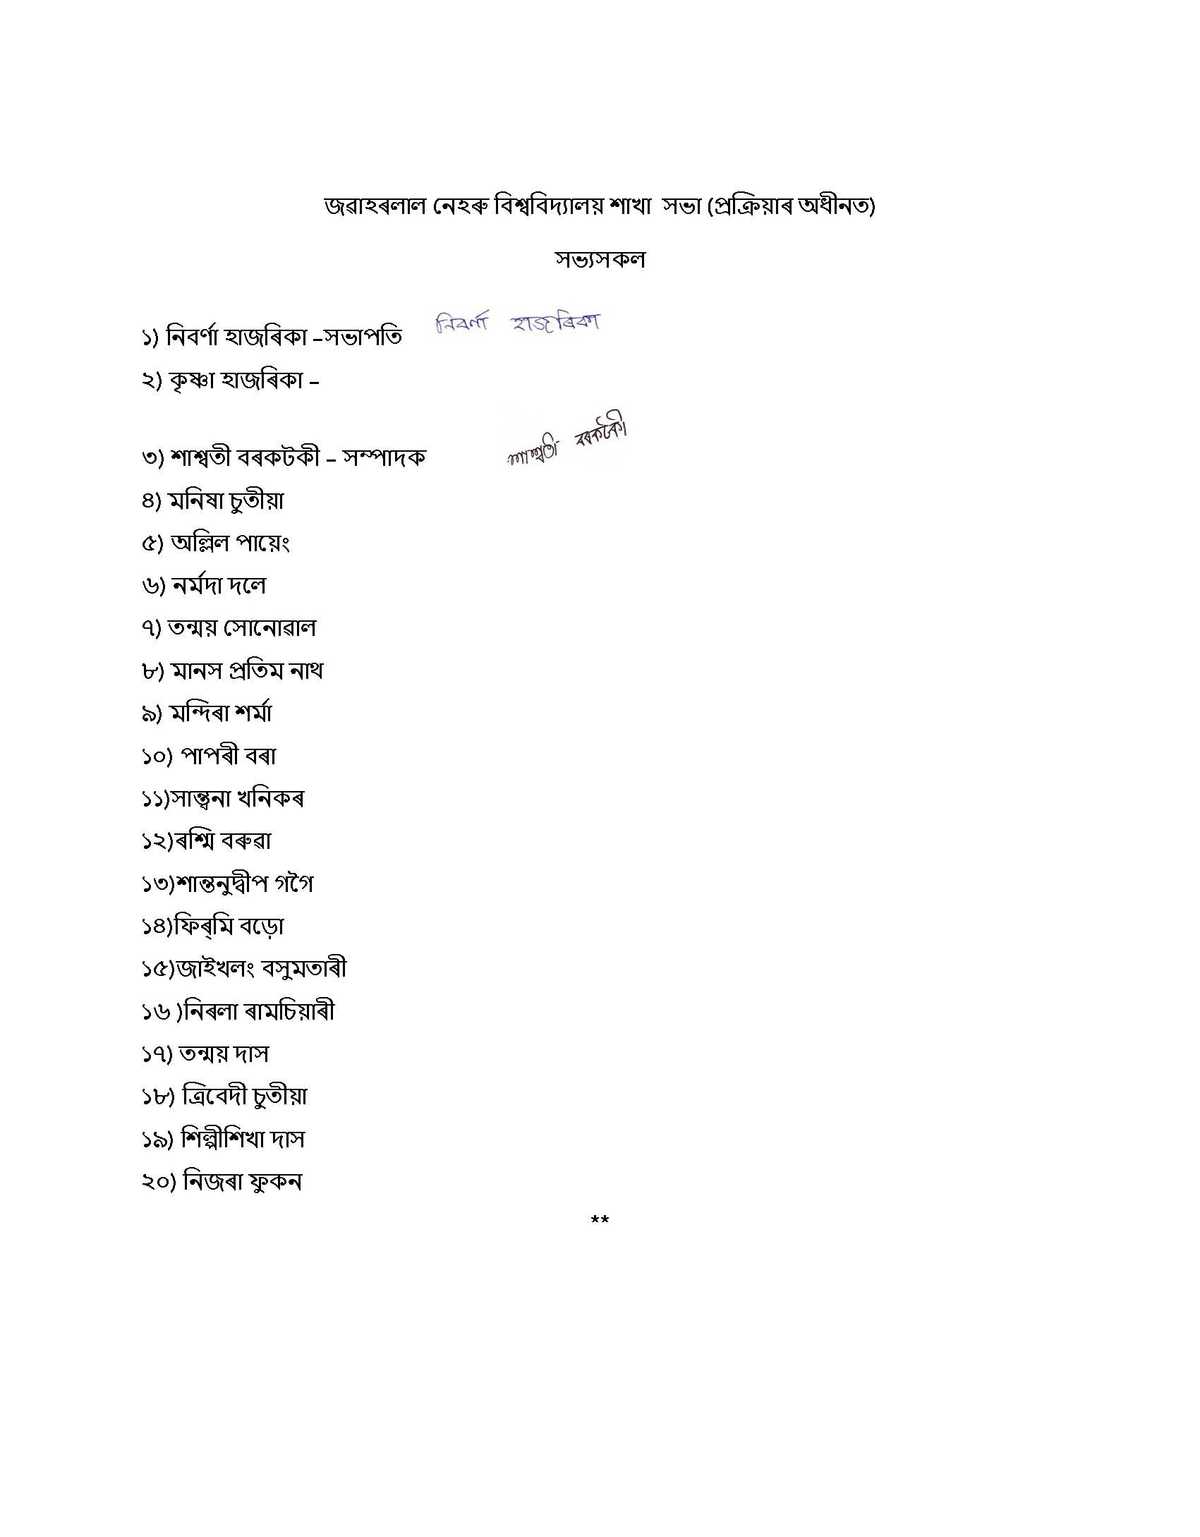 জৱাহৰলাল নেহৰু বিশ্ববিদ্যালয় শাখা সভা (প্ৰক্ৰিয়াৰ অধীনত)
সভ্যসকল
১) নিবৰ্ণা হাজৰিকা –সভাপতি নিবৰ্ণা হাজৰিকা
২) কৃষ্ণা হাজৰিকা –
৩) শাশ্বতী বৰকটকী – সম্পাদক শাশ্বতী বৰকটকী
৪) মনিষা চুতীয়া
৫) অল্লিল পায়েং
৬) নৰ্মদা দলে
৭) তন্ময় সোনোৱাল
৮) মানস প্ৰতিম নাথ
৯) মন্দিৰা শৰ্মা
১০) পাপৰী বৰা
১১)সান্ত্বনা খনিকৰ
১২)ৰশ্মি বৰুৱা
১৩)শান্তনুদ্বীপ গগৈ
১৪)ফিৰ্মি বড়ো
১৫)জাইখলং বসুমতাৰী
১৬ )নিৰলা ৰামচিয়াৰী
১৭) তন্ময় দাস
১৮) ত্ৰিবেদী চুতীয়া
১৯) শিল্পীশিখা দাস
২০) নিজৰা ফুকন
**